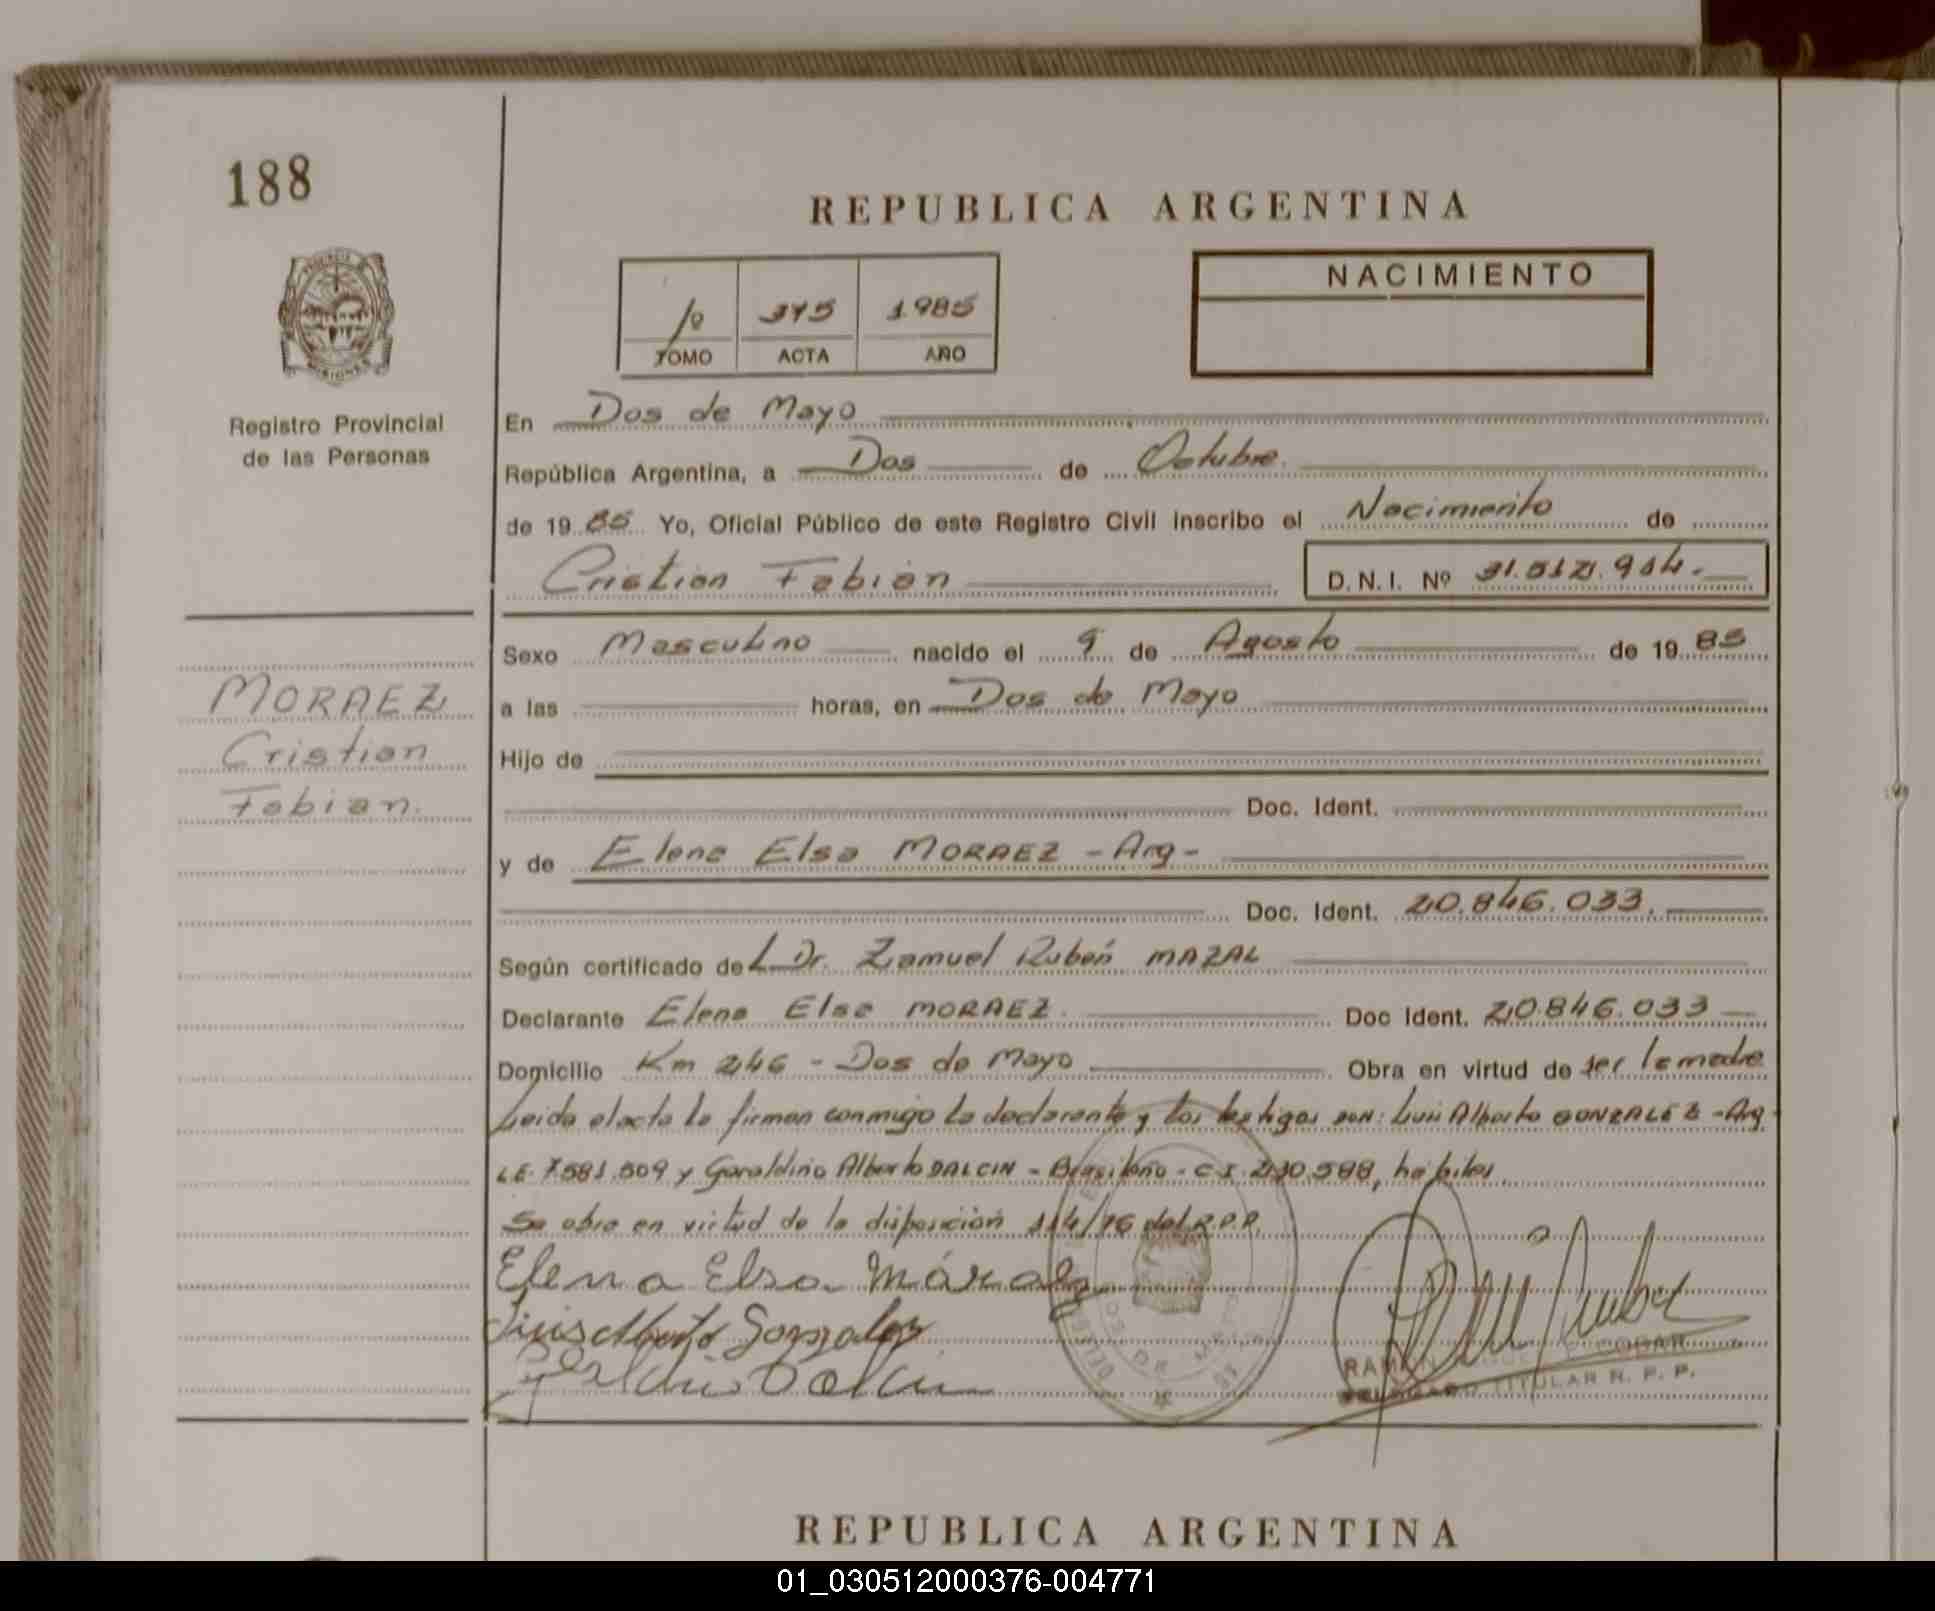 188
REPUBLICA ARGENTINA
NACIMIENTO
1º 375 1985
TOMO ACTA AÑO
Registro Provincial
de las Personas
En Dos de Mayo
República Argentina, a Dos de Octubre.
de 19 85 Yo, Oficial Público de este Registro Civil inscribo el Nacimiento de
Cristian Fabián D.N.I. Nº
Sexo Masculino nacido el 9 de Agosto de 19 85
a las horas, en Dos de Mayo
Hijo de
Doc. Ident.
y de Elena Elsa MORAEZ - Arg -
Doc. Ident. 20.846.033.
MORAEZ
Cristian
Fabian.
Según certificado del Dr. Zamuel Rubén MAZAL
Declarante Elena Elsa MORAEZ. Doc Ident. 20.846.033
Domicilio Km 246 - Dos de Mayo Obra en virtud de ser la madre
Leida el acta la firman conmigo la declarante y los testigos don: Luis Alberto GONZALEZ - Arg -
L.E. 7.581.509 y Geraldino Alberto DALCIN - Brasileño - C.I. 230.588, hábiles.
Se obra en virtud de la disposición 114/76 del R.P.P.
Elena Elsa
Luis Alberto Gonzalez
Dalcin
RAMON
DELEGADO TITULAR R. P. P.
REPUBLICA ARGENTINA
01_030512000376-004771